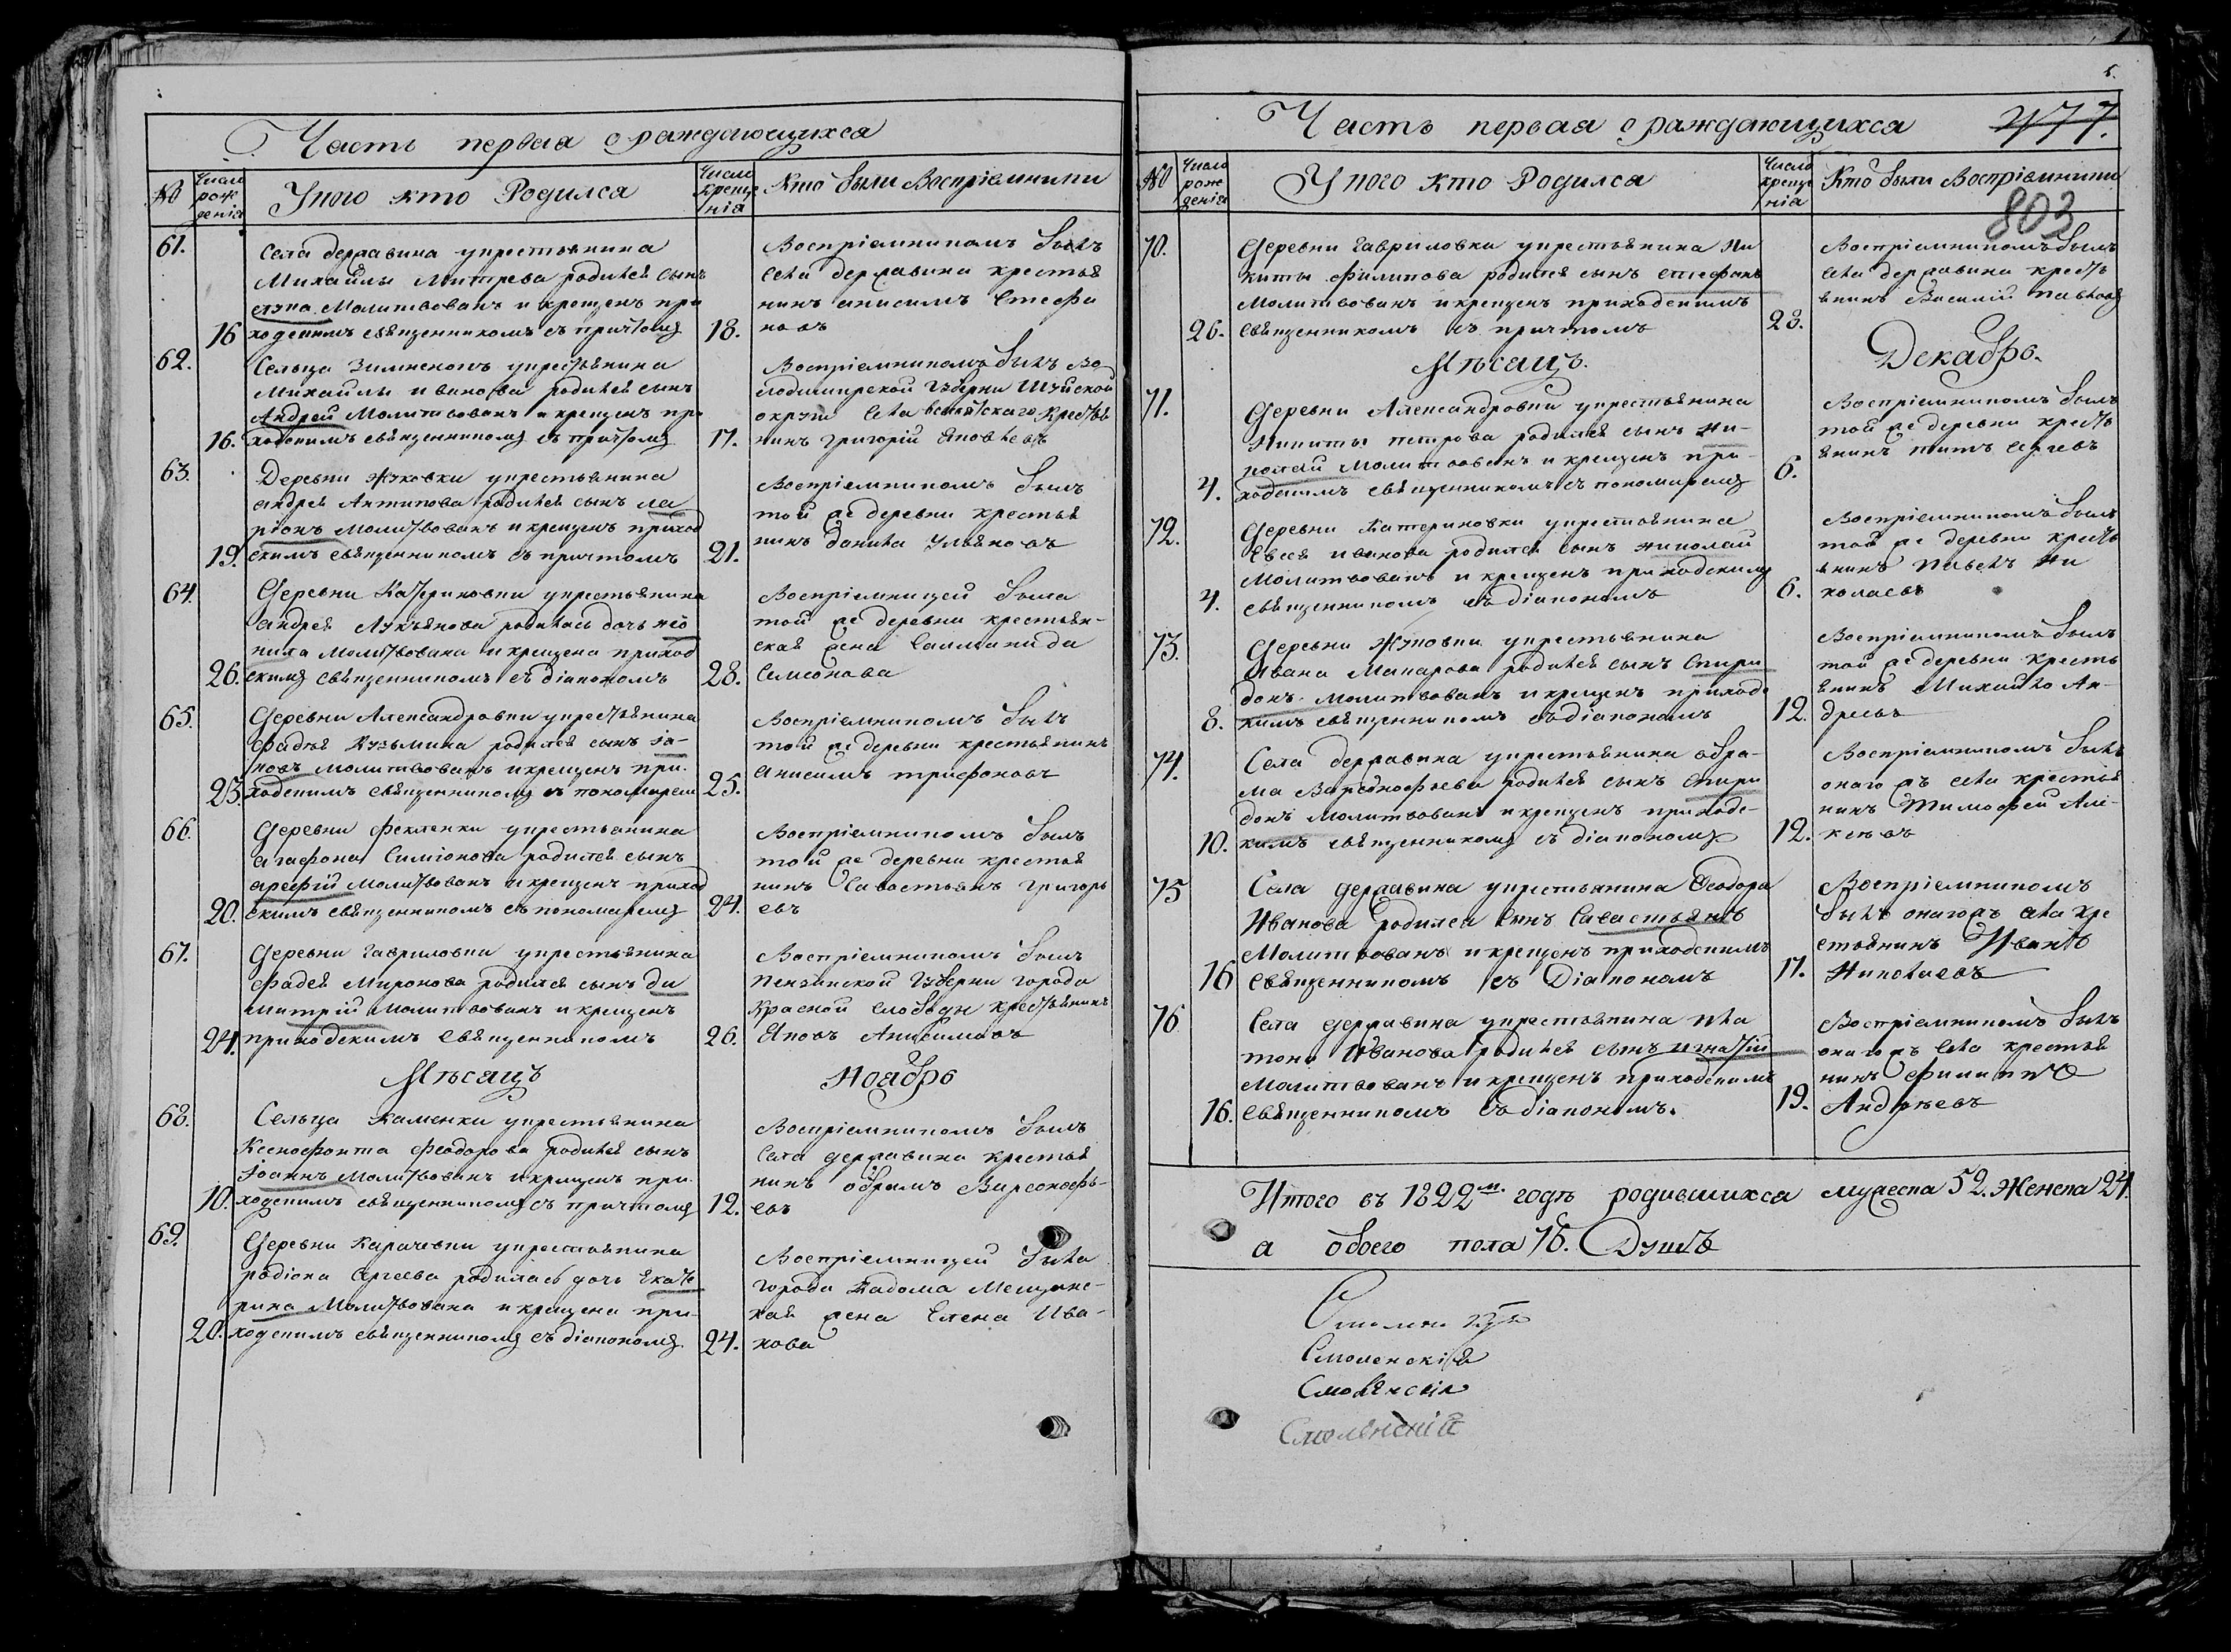 Часть первая о раждающихся
№
Число рож денія
У ково кто Родился
Число креще нія
Кто были Воспріемники
61.
Села державина у крестьянина
Михайлы Митрева родился сынъ
Молитвованъ и крещенъ при
16 ходскимъ священникомъ съ причтомъ
18.
Воспріемникомъ былъ
села державина крестья
нинъ анисимъ Стефа
новъ
62.
Сельца у крестьянина
Михайлы иванова родился сынъ
Андрей Молитвованъ и крещенъ при
16. ходскимъ священникомъ съ причтомъ
17.
Воспріемникомъ былъ Во
лодимирской Губерни Шуйской
округи села крестья
нинъ григорій яковлевъ
63.
Деревни Жуковки у крестьянина
андрея Антипова родился сынъ ла
ріонъ молитвованъ и крещенъ приход
19. скимъ священникомъ съ причтомъ
21.
Воспріемникомъ былъ
той же деревни крестья
нинъ данила Ульяновъ
64.
Деревни Катериновки у крестьянина
андрея Лукьянова родилась дочь нео
нила молитвована и крещена приход
26. скимъ священникомъ съ діакономъ
28.
Воспріемницей была
той же деревни крестьян-
ская жена
Симеонова
65.
Деревни Александровки у крестьянина
фадѣя Кузьмина родился сынъ іа-
ковъ молитвованъ и крещенъ при-
23. ходскимъ священникомъ съ пономаремъ
25.
Воспріемникомъ былъ
той же деревни крестьянинъ
анисимъ трифоновъ
66.
Деревни фекленки у крестьянина
агафона Симіонова родился сынъ
арефій молитвованъ и крещенъ приход
20. скимъ священникомъ съ пономаремъ
24.
Воспріемникомъ былъ
той же деревни крестья
нинъ Савостьянъ григорь
евъ
67.
Деревни гавриловки у крестьянина
фадея Миронова родился сынъ ди
митрій молитвованъ и крещенъ
24. приходскимъ священникомъ
26.
Воспріемникомъ былъ
пензинской Губерни города
Красной слободы крестьянинъ
Яковъ Анисимовъ
Мѣсяцъ Ноябрь
68.
Сельца Каменки у крестьянина
Ксенофонта Феодорова родился сынъ
Іоаннъ молитвованъ и крещенъ при-
10. ходскимъ священникомъ съ причтомъ
12.
Воспріемникомъ былъ
села державина крестья
нинъ обрамъ Варсонофь-
евъ
69.
Деревни Карачевки у крестьянина
радіона Сергеева родилась дочь Екате
рина Молитвована и крещена при-
20. ходскимъ священникомъ съ діакономъ
24.
Воспріемницей была
города Кадома Мещанс-
кая жена Елена Ива-
нова
Часть первая о раждающихся
477.
803
№
Число рож денія
У ково кто Родился
Число креще нія
Кто были Воспріемники
70.
Деревни гавриловки у крестьянина Ни
киты филипова родился сынъ стефанъ
Молитвованъ и крещенъ приходскимъ
26. священникомъ съ причтомъ
28.
Воспріемникомъ былъ
села державина кресть
янинъ Василій павловъ
Мѣсяцъ. Декабрь.
71.
Деревни Александровки у крестьянина
Никиты петрова родился сынъ Ни-
колай Молитвованъ и крещенъ при-
4. ходскимъ священникомъ съ пономаремъ
6.
Воспріемникомъ былъ
той же деревни кресть
янинъ титъ сергевъ
72.
Деревни Катериновки у крестьянина
иванова родился сынъ николай
Молитвованъ и крещенъ приходскимъ
4. священникомъ съ діакономъ
6.
Воспріемникомъ былъ
той же деревни кресть
янинъ павелъ Ни
колаевъ
73.
Деревни Жуковки у крестьянина
Ивана Макарова родился сынъ Спири
донъ молитвованъ и крещенъ приходс
8. кимъ священникомъ съ діакономъ
12.
Воспріемникомъ былъ
той же деревни кресть
янинъ Михайло Ан-
дреевъ
74.
Села державина у крестьянина обра-
ма Варсонофьева родился сынъ Спири
донъ Молитвованъ и крещенъ приходс-
10. кимъ священникомъ съ діакономъ
12.
Воспріемникомъ былъ
онаго жъ села крестья
нинъ Тимофей Але-
ксѣевъ
75
Села державина у крестьянина Феодора
Иванова родился сынъ Савастьянъ
Молитвованъ и крещенъ приходскимъ
16 священникомъ съ Діакономъ
17.
Воспріемникомъ
былъ онаго жъ села кре
стьянинъ Иванъ
Николаевъ
76
Села державина у крестьянина пла
тона Иванова родился сынъ игнатій
Молитвованъ и крещенъ приходскимъ
16. священникомъ съ діакономъ.
19.
Воспріемникомъ былъ
онаго жъ села крестья
нинъ филиппъ
Андрѣевъ
Итого въ 1822м. годѣ родившихся мужеска 52. Женска 24.
а обоего пола 76. Душъ
Смоленскій
Смоленскій